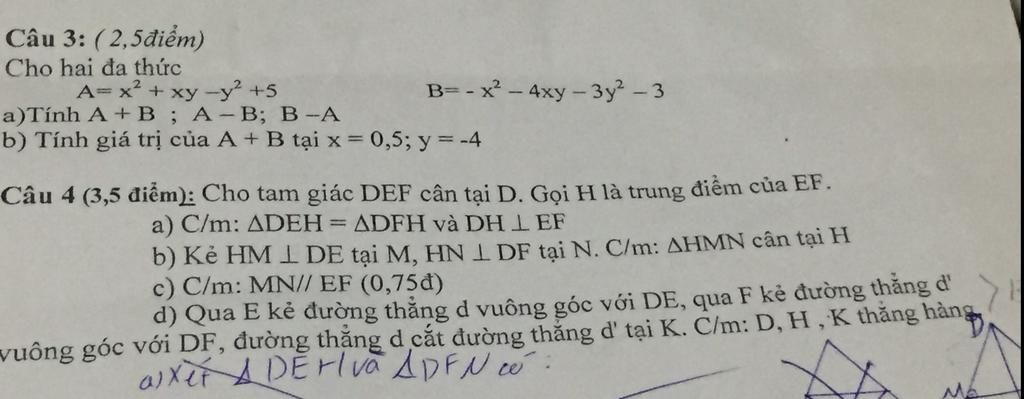 Câu 3: ( 2,5điểm)
Cho hai đa thức
A= x² + xy –y² +5 B= - x² – 4xy – 3y² – 3
a)Tính A + B ; A – B; B –A
b) Tính giá trị của A + B tại x = 0,5; y = -4
Câu 4 (3,5 điểm): Cho tam giác DEF cân tại D. Gọi H là trung điểm của EF.
a) C/m: ΔDEH = ΔDFH và DH ⊥ EF
b) Kẻ HM ⊥ DE tại M, HN ⊥ DF tại N. C/m: ΔHMN cân tại H
c) C/m: MN// EF (0,75đ)
d) Qua E kẻ đường thẳng d vuông góc với DE, qua F kẻ đường thẳng d'
vuông góc với DF, đường thẳng d cắt đường thẳng d' tại K. C/m: D, H , K thẳng hàng
D
a) Xét Δ DEH và Δ DFN có :
M